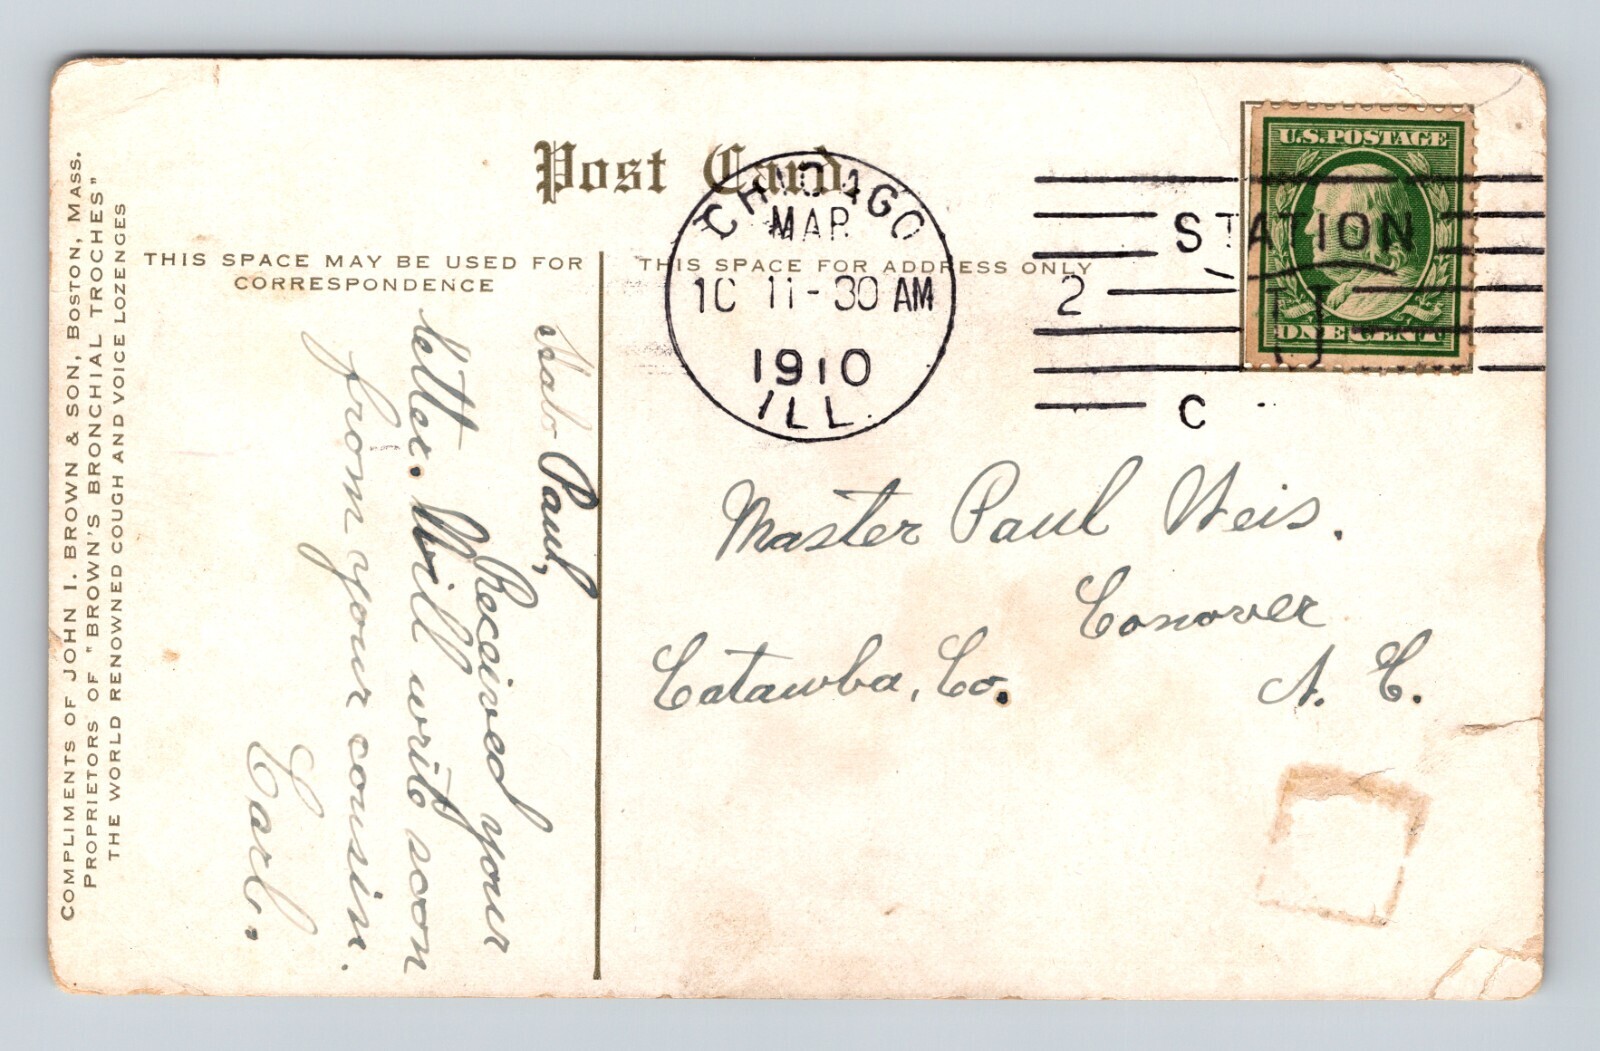 COMPLIMENTS OF JOHN I. BROWN & SON, BOSTON, MASS.
PROPRIETORS OF "BROWN'S BRONCHIAL TROCHES"
THE WORLD RENOWNED COUGH AND VOICE LOZENGES
Post Card.
THIS SPACE MAY BE USED FOR
CORRESPONDENCE
THIS SPACE FOR ADDRESS ONLY
CHICAGO
MAR
10 11-30 AM
1910
ILL.
STATION
2
U
C
U.S.POSTAGE
ONE CENT
Paul,
Received your
letter. Will write soon
from your cousin.
Carl.
Master Paul Weis.
Conover
Catawba, Co.
N. C.